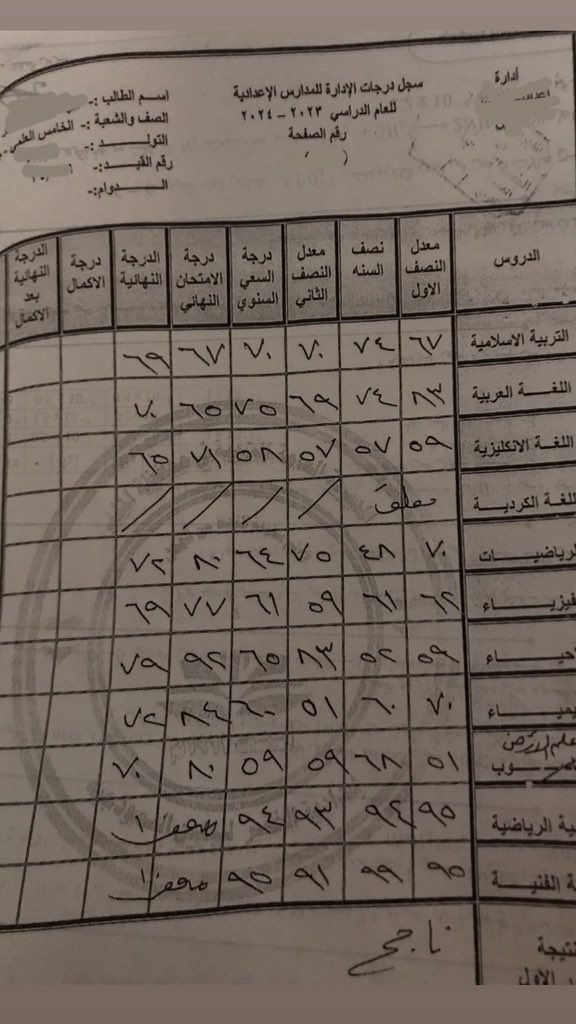 أدارة
سجل درجات الإدارة للمدارس الإعدادية
للعام الدراسي ٢٠٢٣ - ٢٠٢٤
رقم الصفحة
( )
اسم الطالب :-
الصف والشعبة :- الخامس العلمي -
التولد :-
رقم القيد :-
الدوام:-
الدروس معدل النصف الاول نصف السنه معدل النصف الثاني درجة السعي السنوي درجة الامتحان النهائي الدرجة النهائية درجة الاكمال الدرجة النهائية بعد الاكمال
التربية الاسلامية ٦٧ ٧٤ ٧٠ ٧٠ ٦٧ ٦٩
اللغة العربية ٨٣ ٧٤ ٦٩ ٧٥ ٦٥ ٧٠
اللغة الانكليزية ٥٩ ٥٧ ٥٧ ٥٨ ٧١ ٦٥
للغة الكردية / / / /
لرياضيات ٧٠ ٤٨ ٧٥ ٦٤ ٨٠ ٧٢
فيزياء ٦٢ ٦١ ٥٩ ٦١ ٧٧ ٦٩
حياء ٥٩ ٥٢ ٨٣ ٦٥ ٩٢ ٧٩
يمياء ٧٠ ٦٠ ٥١ ٦٠ ٨٤ ٧٢
علم الارض
وب ٥١ ٦٨ ٥٩ ٥٩ ٨٠ ٧٠
ية الرياضية ٩٥ ٩٤ ٩٣ ٩٤
ة الفنية ٩٥ ٩٩ ٩١ ٩٥
نتيجة
الاول
ناجح